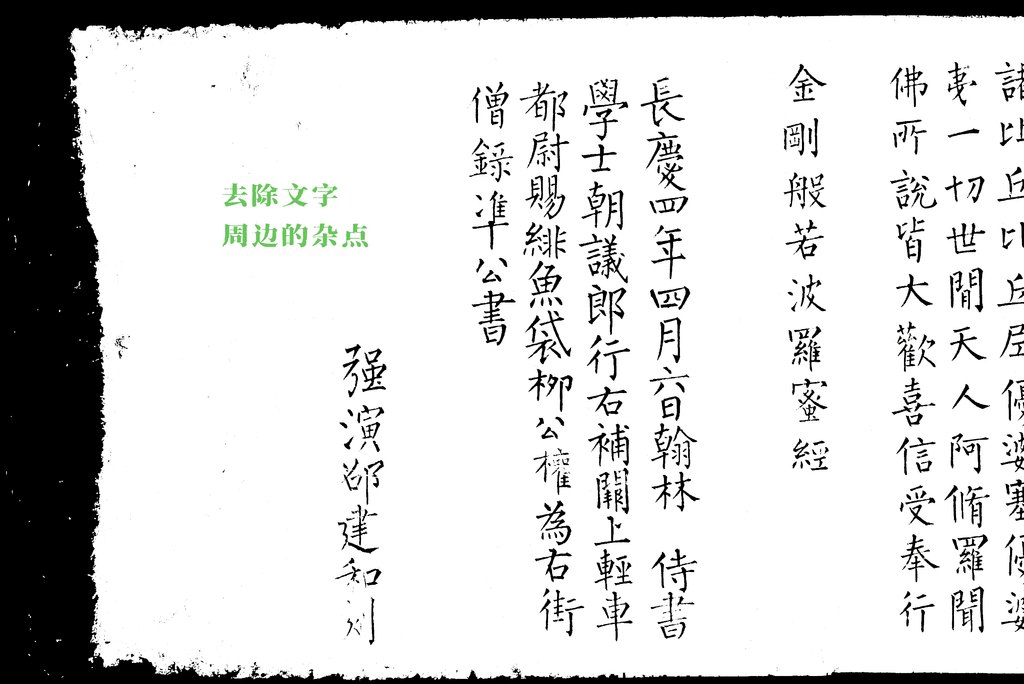 諸比丘比丘尼優婆塞優婆
夷一切世間天人阿脩羅聞
佛所說皆大歡喜信受奉行
金剛般若波羅蜜經
長慶四年四月六日翰林 侍書
學士朝議郎行右補闕上輕車
都尉賜緋魚袋柳公權為右街
僧錄準公書
强演邵建和刻
去除文字
周边的杂点